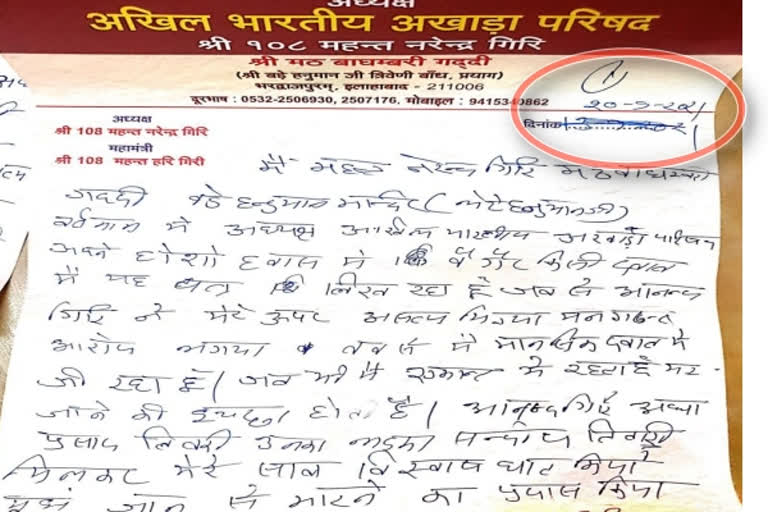 अध्यक्ष
अखिल भारतीय अखाड़ा परिषद
श्री १०८ महन्त नरेन्द्र गिरि
श्री मठ बाघम्बरी गद्दी
(श्री बड़े हनुमान जी त्रिवेणी बाँध, प्रयाग)
भरद्वाजपुरम्, इलाहाबाद - 211006
दूरभाष : 0532-2506930, 2507176, मोबाइल : 9415340862
अध्यक्ष
श्री 108 महन्त नरेन्द्र गिरि
महामंत्री
श्री 108 महन्त हरि गिरी
दिनांक
मैं महन्त नरेन्द्र गिरि मठ बाघम्बरी
गद्दी बड़े हनुमान मन्दिर (लेटे हनुमानजी)
वर्तमान मे अध्यक्ष अखिल भारतीय अखाड़ा परिषद
अपने होशो हवास मे बगैर किसी दबाव
मैं यह पत्र लिख रहा हूँ जब से आनन्द
गिरि ने मेरे ऊपर असत्य मिथ्या मनगढन्त
आरोप लगाया तब से मैं मानसिक दबाव मे
जी रहा हूँ। जब भी मैं एकान्त मे रहता हूँ मर
जाने की इच्छा होती है। आनन्द गिरि आद्या
प्रसाद तिवारी उनका लड़का सन्दीप तिवारी
मिलकर मेरे साथ विश्वासघात किया
मुझे जान से मारने का प्रयास किया